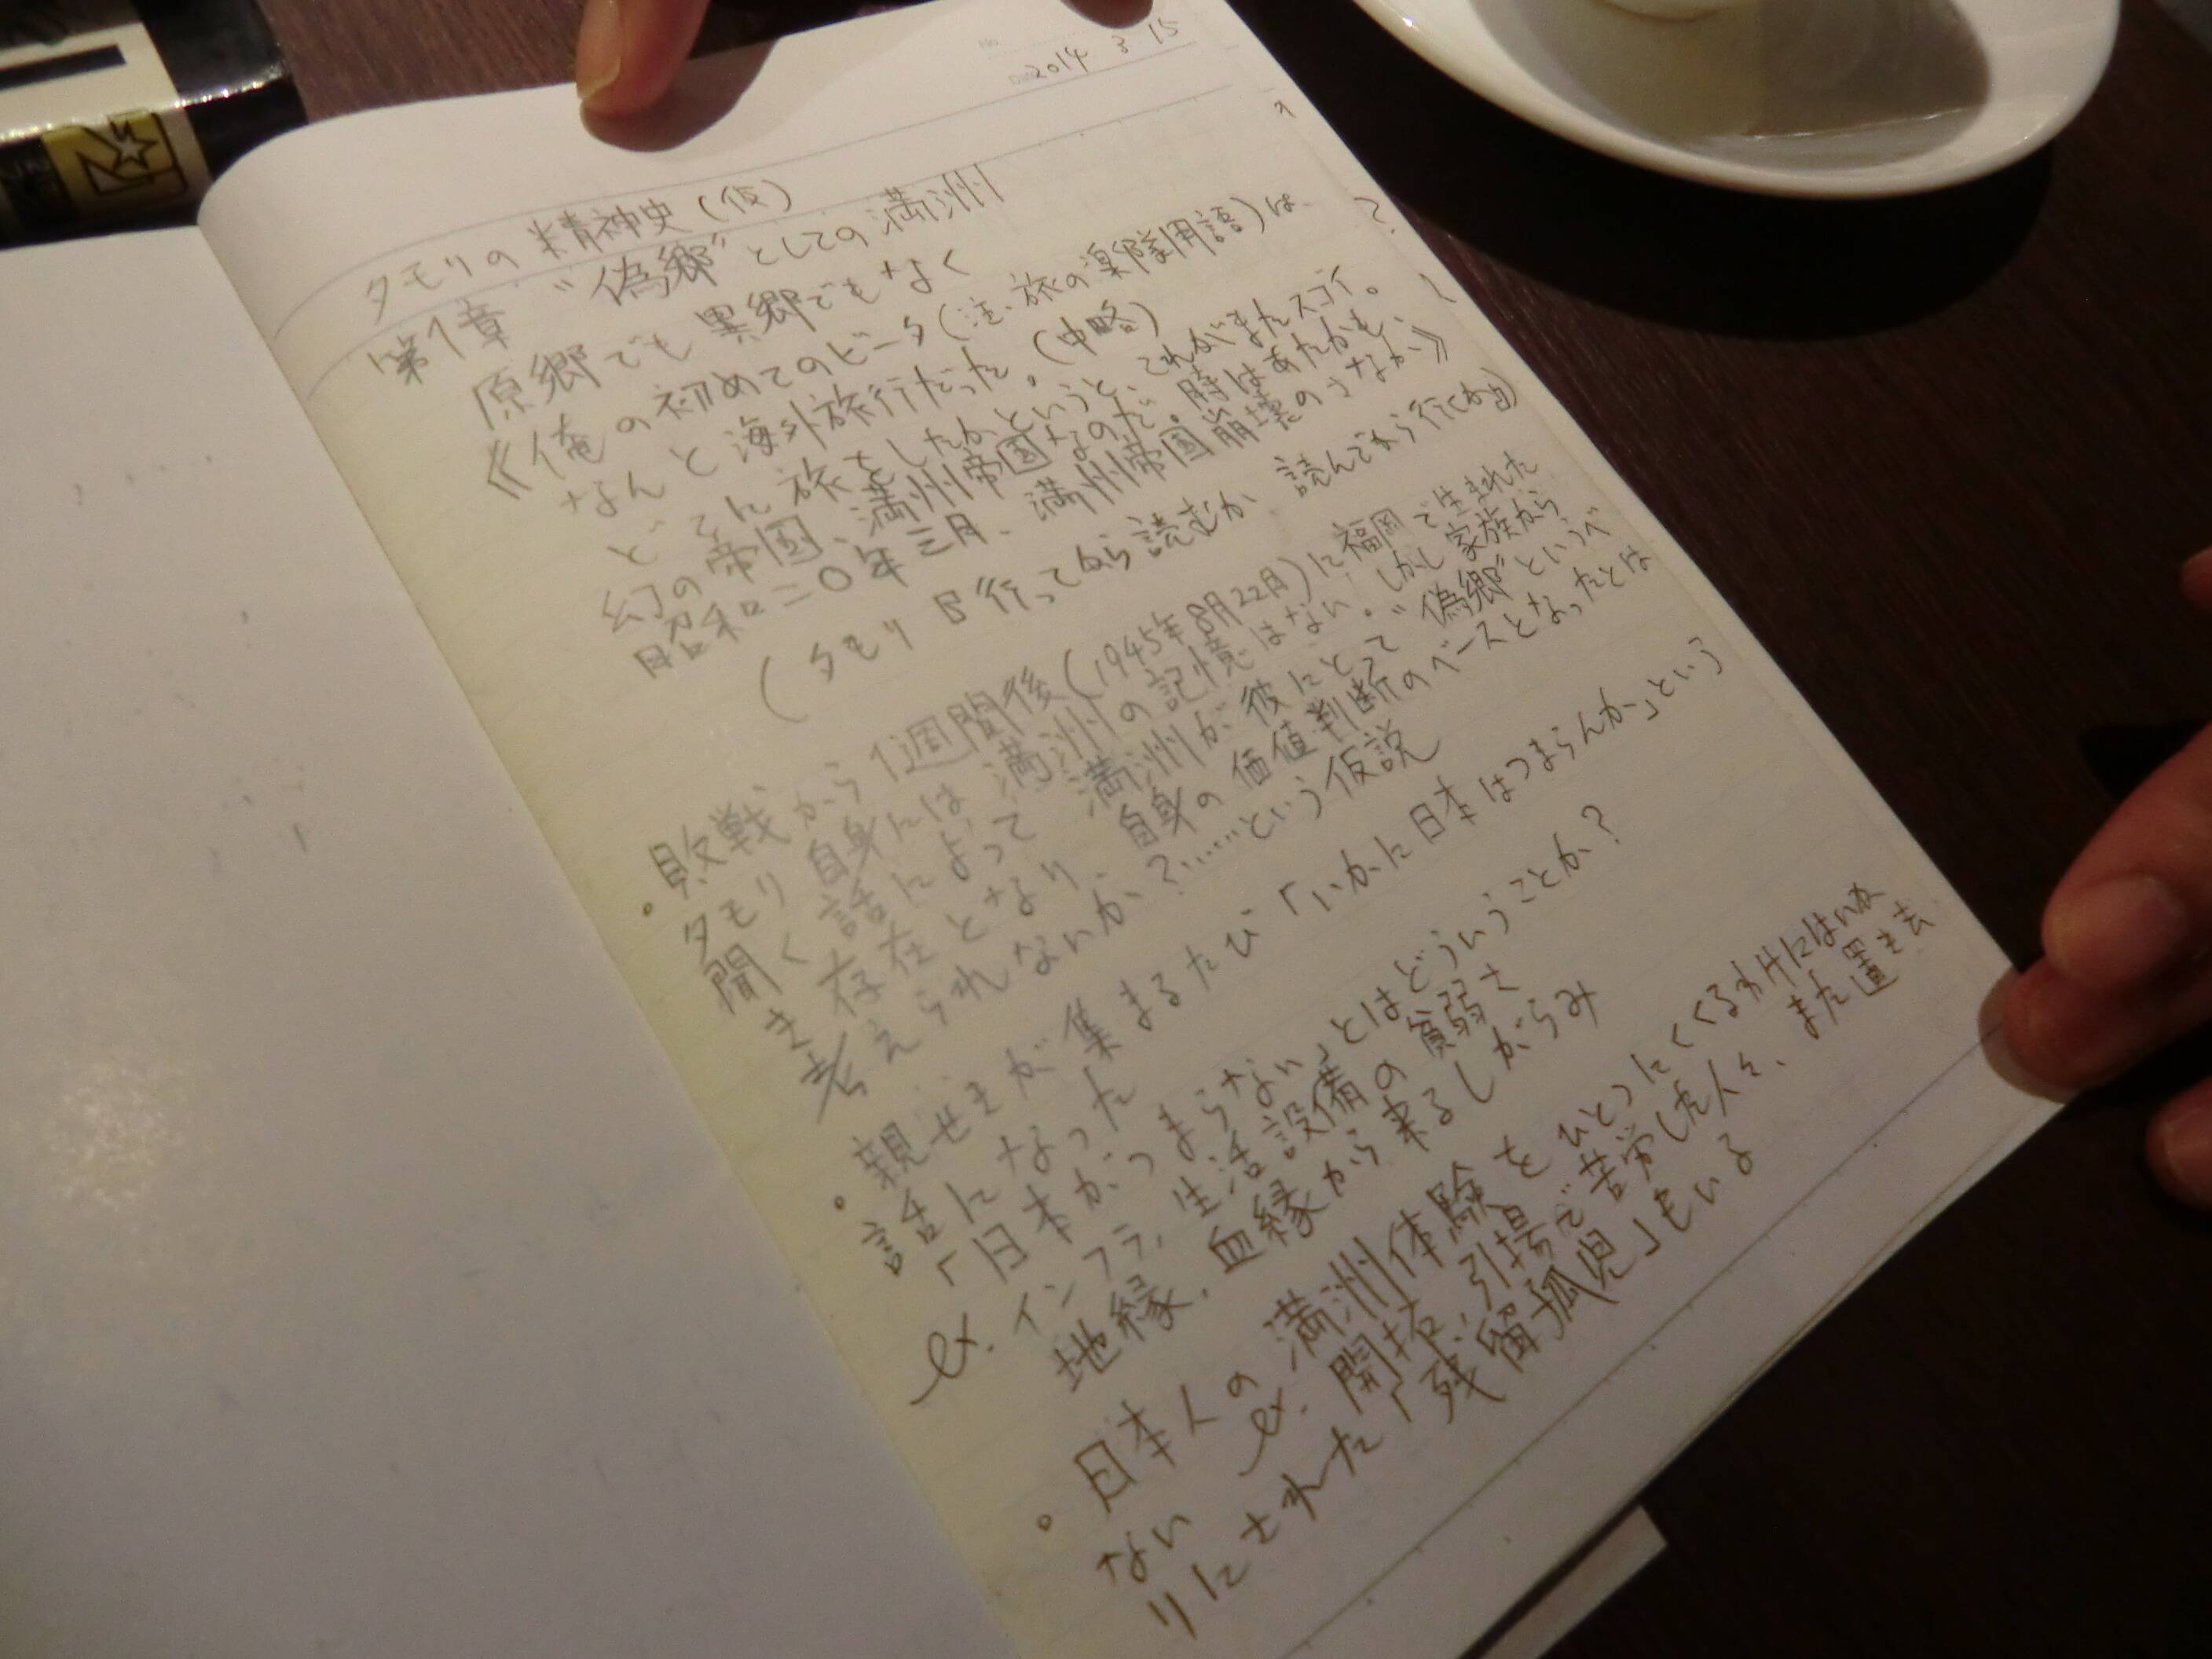 No.
Date 2014 3 15
タモリの精神史(仮)
第1章 “偽郷”としての満洲
原郷でも異郷でもなく
《俺の初めてのビータ(注・旅の楽隊用語)は、
なんと海外旅行だった。(中略)
どこに旅をしたかというと、これがまたスゴイ。
幻の帝国、満州帝国なのだ。時はあたかも、
昭和二〇年三月、満州帝国崩壊のさなか》
(タモリ 行ってから読むか 読んでから行くか
・敗戦から1週間後(1945年8月22日)に福岡で生まれた
タモリ自身には満洲の記憶はない。しかし家族から
聞く話によって満洲が彼にとって“偽郷”というべ
き存在となり、自身の価値判断のベースとなったとは
考えられないか?……という仮説
・親せきが集まるたび「いかに日本はつまらんか」という
話になった
「日本がつまらない」とはどういうことか?
ex. インフラ, 生活設備の貧弱さ
地縁, 血縁から来るしがらみ
・日本人の満洲体験をひとつにくくるわけにはいか
ない ex. 開拓、引揚で苦労した人々、また置き去
りにされた「残留孤児」もいる